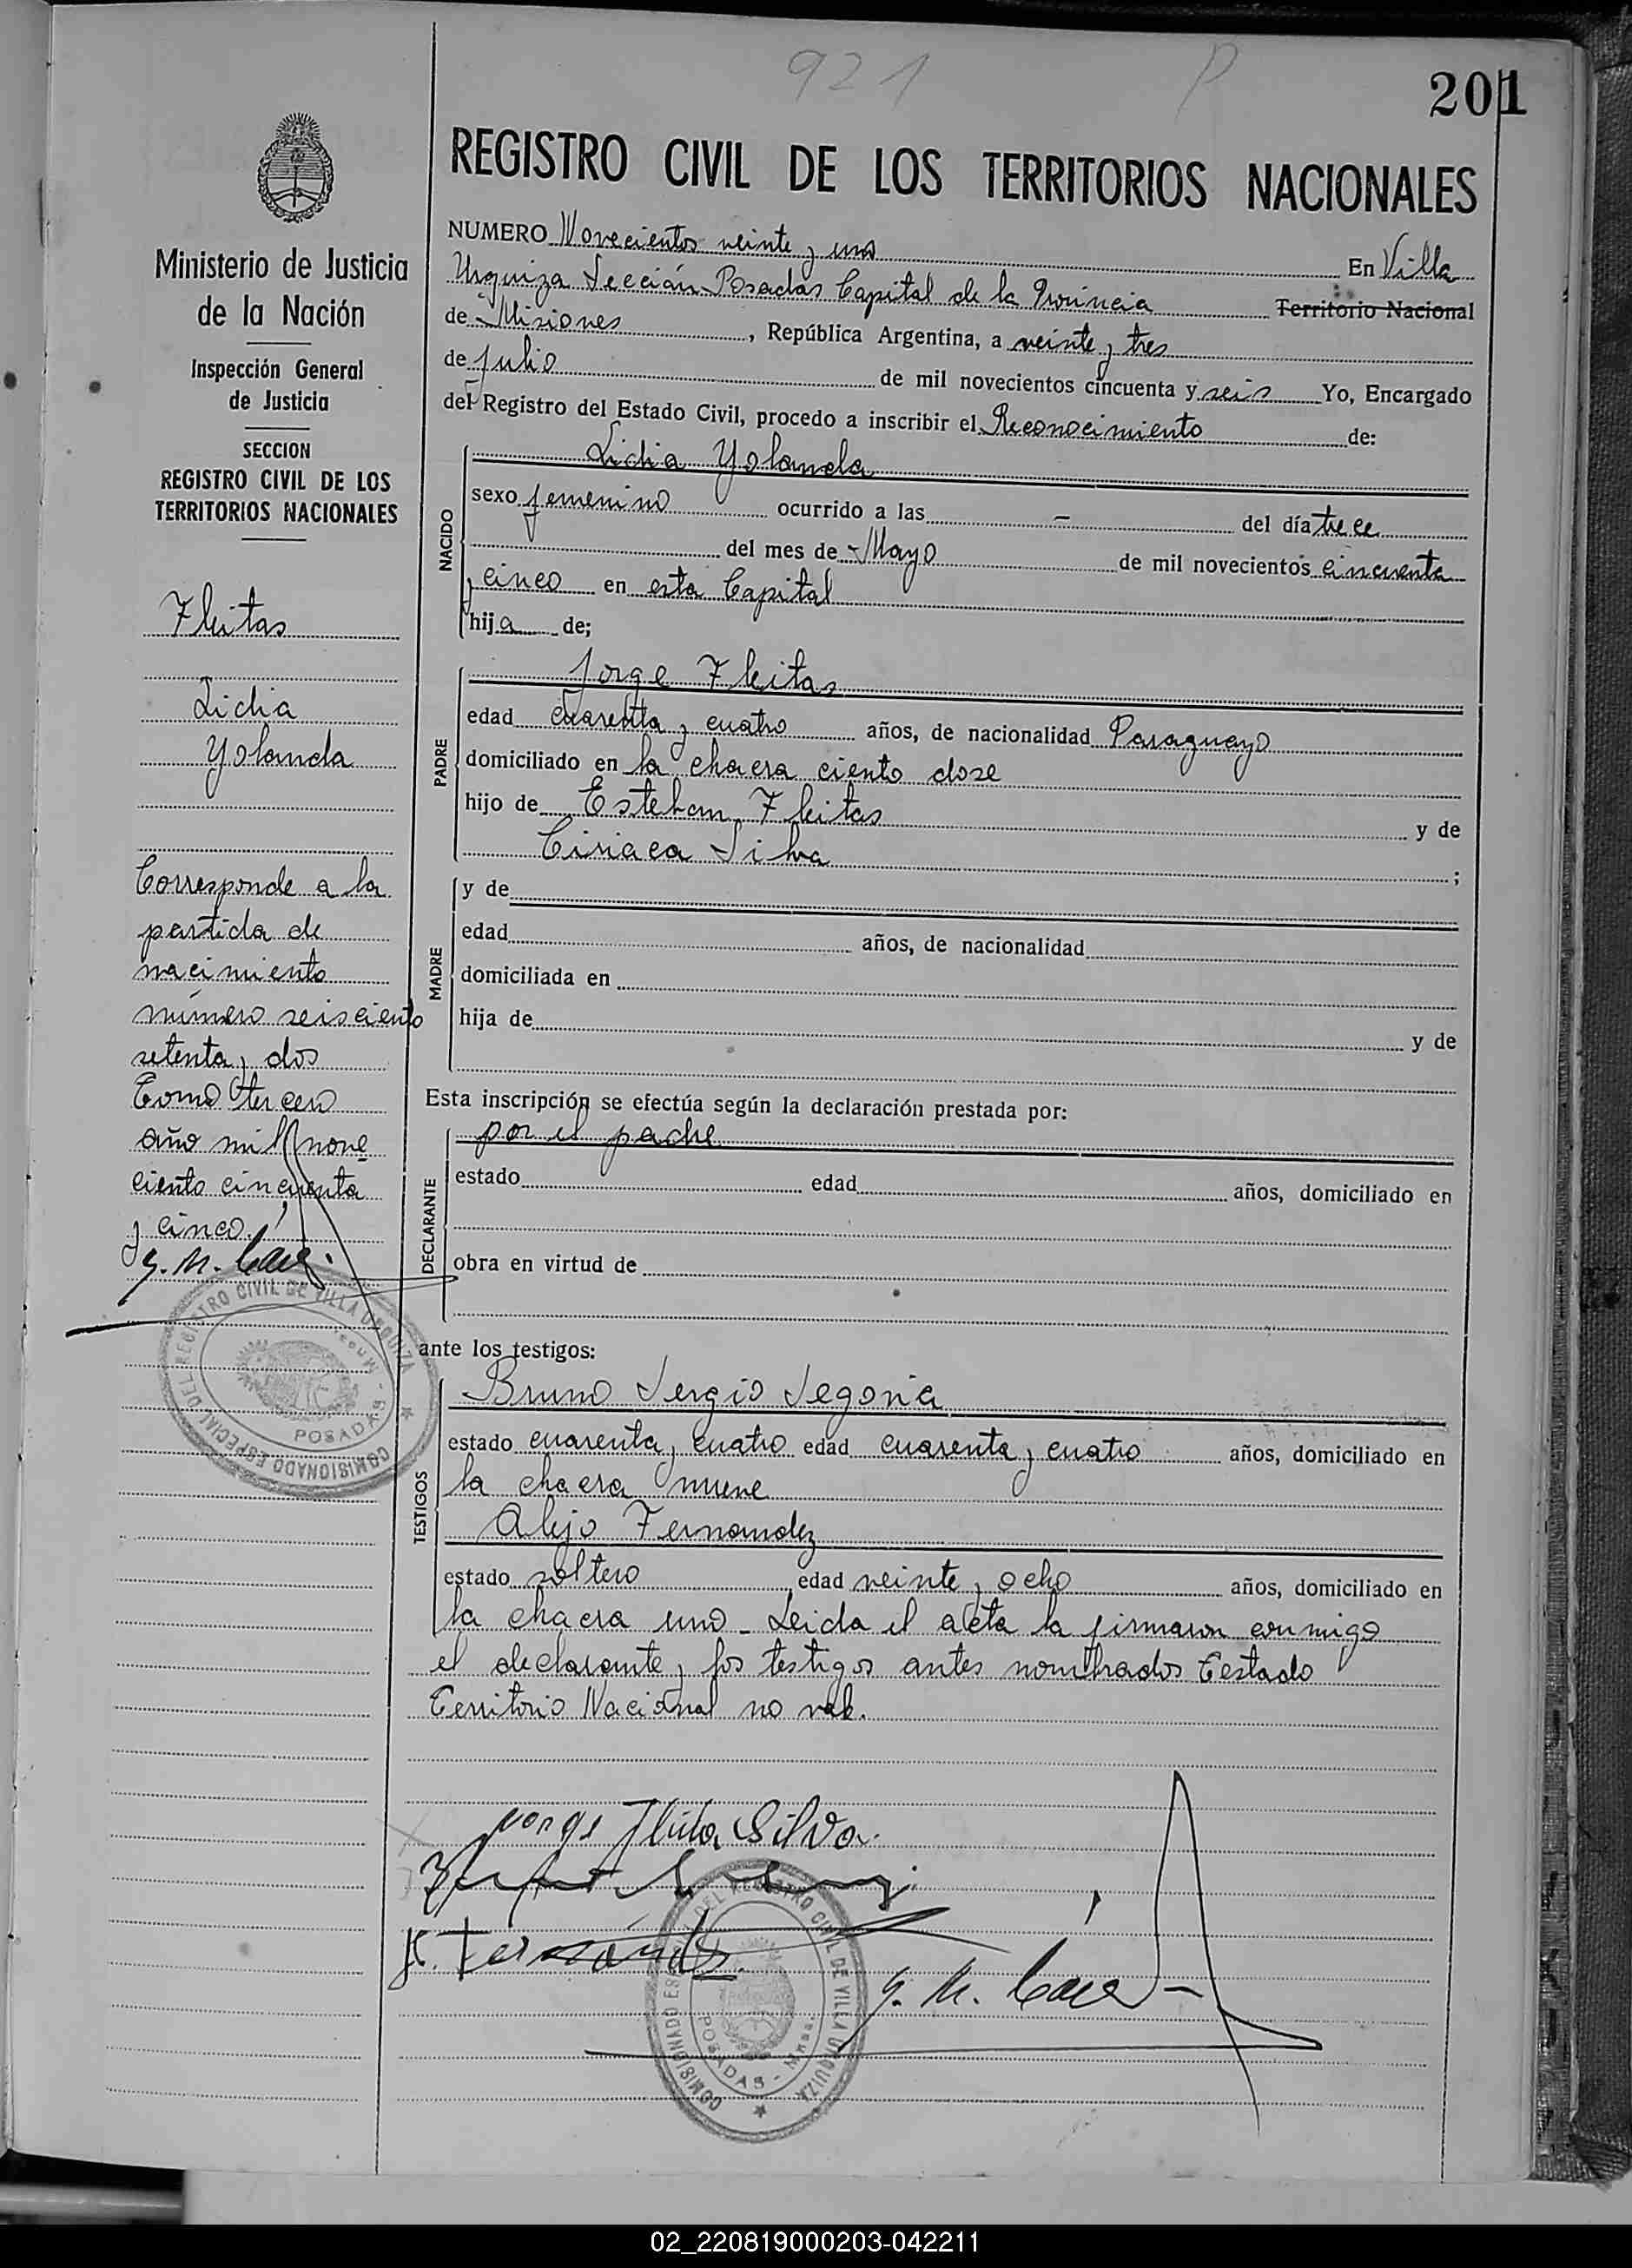 921 P
201
REGISTRO CIVIL DE LOS TERRITORIOS NACIONALES
Ministerio de Justicia
de la Nación
Inspección General
de Justicia
SECCION
REGISTRO CIVIL DE LOS
TERRITORIOS NACIONALES
Fleitas
Lidia
Yolanda
Corresponde a la
partida de
nacimiento
número seisciento
setenta y dos
Tomo tercero
año mil nove
ciento cincuenta
y cinco.
COMISIONADO ESPECIAL DEL REGISTRO CIVIL DE VILLA URQUIZA
POSADAS - Mnes.
NUMERO Novecientos veinte y uno En Villa
Urquiza Sección Posadas Capital de la Provincia Territorio Nacional
de Misiones, República Argentina, a veinte y tres
de Julio de mil novecientos cincuenta y seis Yo, Encargado
del Registro del Estado Civil, procedo a inscribir el Reconocimiento de:
NACIDO
Lidia Yolanda
sexo femenino ocurrido a las - del día trece
del mes de Mayo de mil novecientos cincuenta
y cinco en esta Capital
hija de;
PADRE
Jorge Fleitas
edad cuarenta y cuatro años, de nacionalidad Paraguayo
domiciliado en la chacra ciento doze
hijo de Esteban Fleitas y de
Ciriaca Silva ;
MADRE
y de
edad años, de nacionalidad
domiciliada en
hija de y de
Esta inscripción se efectúa según la declaración prestada por:
DECLARANTE
por el padre
estado edad años, domiciliado en
obra en virtud de
ante los testigos:
TESTIGOS
Bruno Sergio Segovia
estado cuarenta y cuatro edad cuarenta y cuatro años, domiciliado en
la chacra nueve
Alejo Fernandez
estado soltero edad veinte y ocho años, domiciliado en
la chacra uno - Leida el acta la firmaron conmigo
el declarante y los testigos antes nombrados Testado
Territorio Nacional no vale.
Jorge Fleita Silva.
A. Fernández.
COMISIONADO ESPECIAL DEL REGISTRO CIVIL DE VILLA URQUIZA
POSADAS - Mnes.
02_220819000203-042211